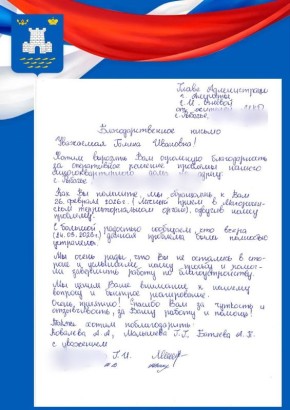 Глава Администрации
г. Алушты
Г.И. Огневой
от жителей МКД
г. Алушта,
Благодарственное письмо
Уважаемая Галина Ивановна!
Хотим выразить Вам огромную благодарность
за оперативное решение проблемы нашего
многоквартирного дома по адресу:
г. Алушта
Как Вы помните, мы обращались к Вам
26 февраля 2026г. (личный прием в
территориальном органе), озвучив нашу
проблему.
С большой радостью сообщаем, что вчера
(24.03.2026г.) данная проблема была полностью
устранена.
Мы очень рады, что Вы не остались в сто-
роне и услышали нашу просьбу и помог-
ли завершить работу по благоустройству.
Мы ценим Ваше внимание к нашему
вопросу и быстрое реагирование.
Очень приятно! Спасибо Вам за чуткость и
отзывчивость, за Вашу работу и помощь!
Также хотим поблагодарить:
Ковалева А.А., Г.Г. А.В.
С уважением
Г.И.